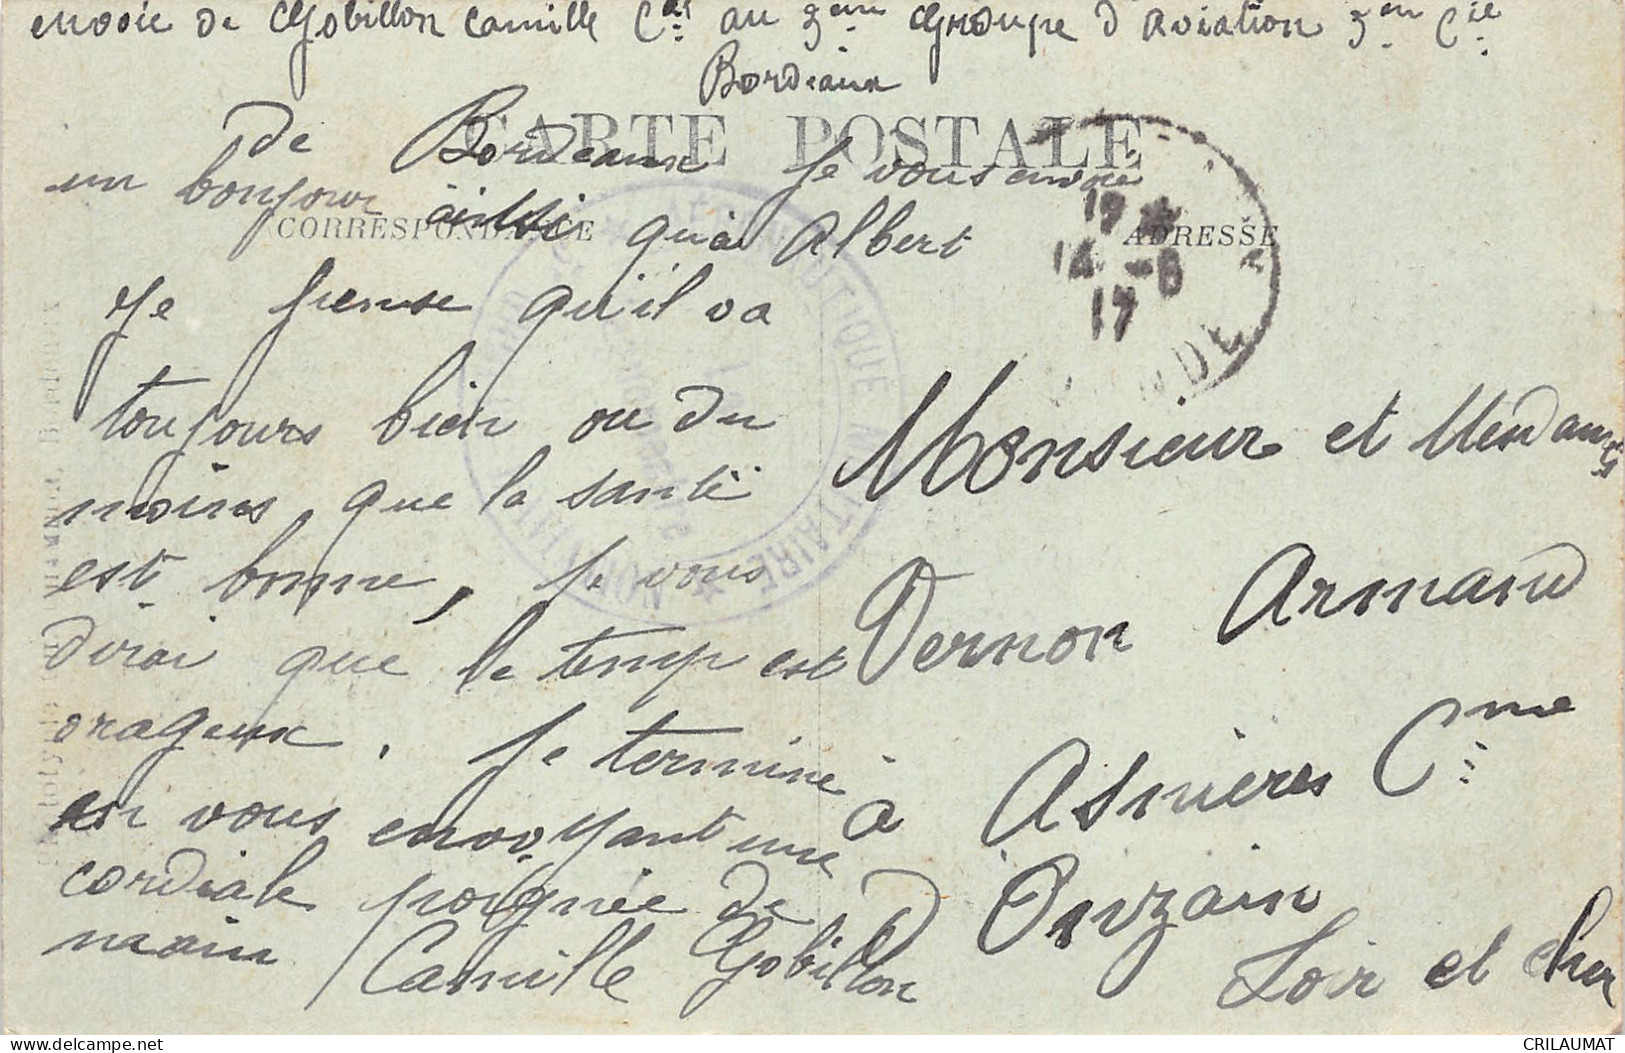 envoie de Gobillon Camille Cal au 3eme Groupe d'aviation 3em Cie
Bordeaux
CARTE POSTALE
de Bordeaux Je vous envoie
un bonjour ainssi qu'à Albert
CORRESPONDANCE
ADRESSE
Je pense qu'il va
toujours bien ou du
moins que la santé
est bonne, Je vous
dirai que le temp est
orageux. Je termine
en vous envoyant une
cordiale poignée de
main
Camille Gobillon
Monsieur et Mesdames
Vernon Armand
à Asnières Cme
D'Onzain
Loir et cher
19 *
14 -8
17
AÉRONAUTIQUE MILITAIRE
CRILAUMAT